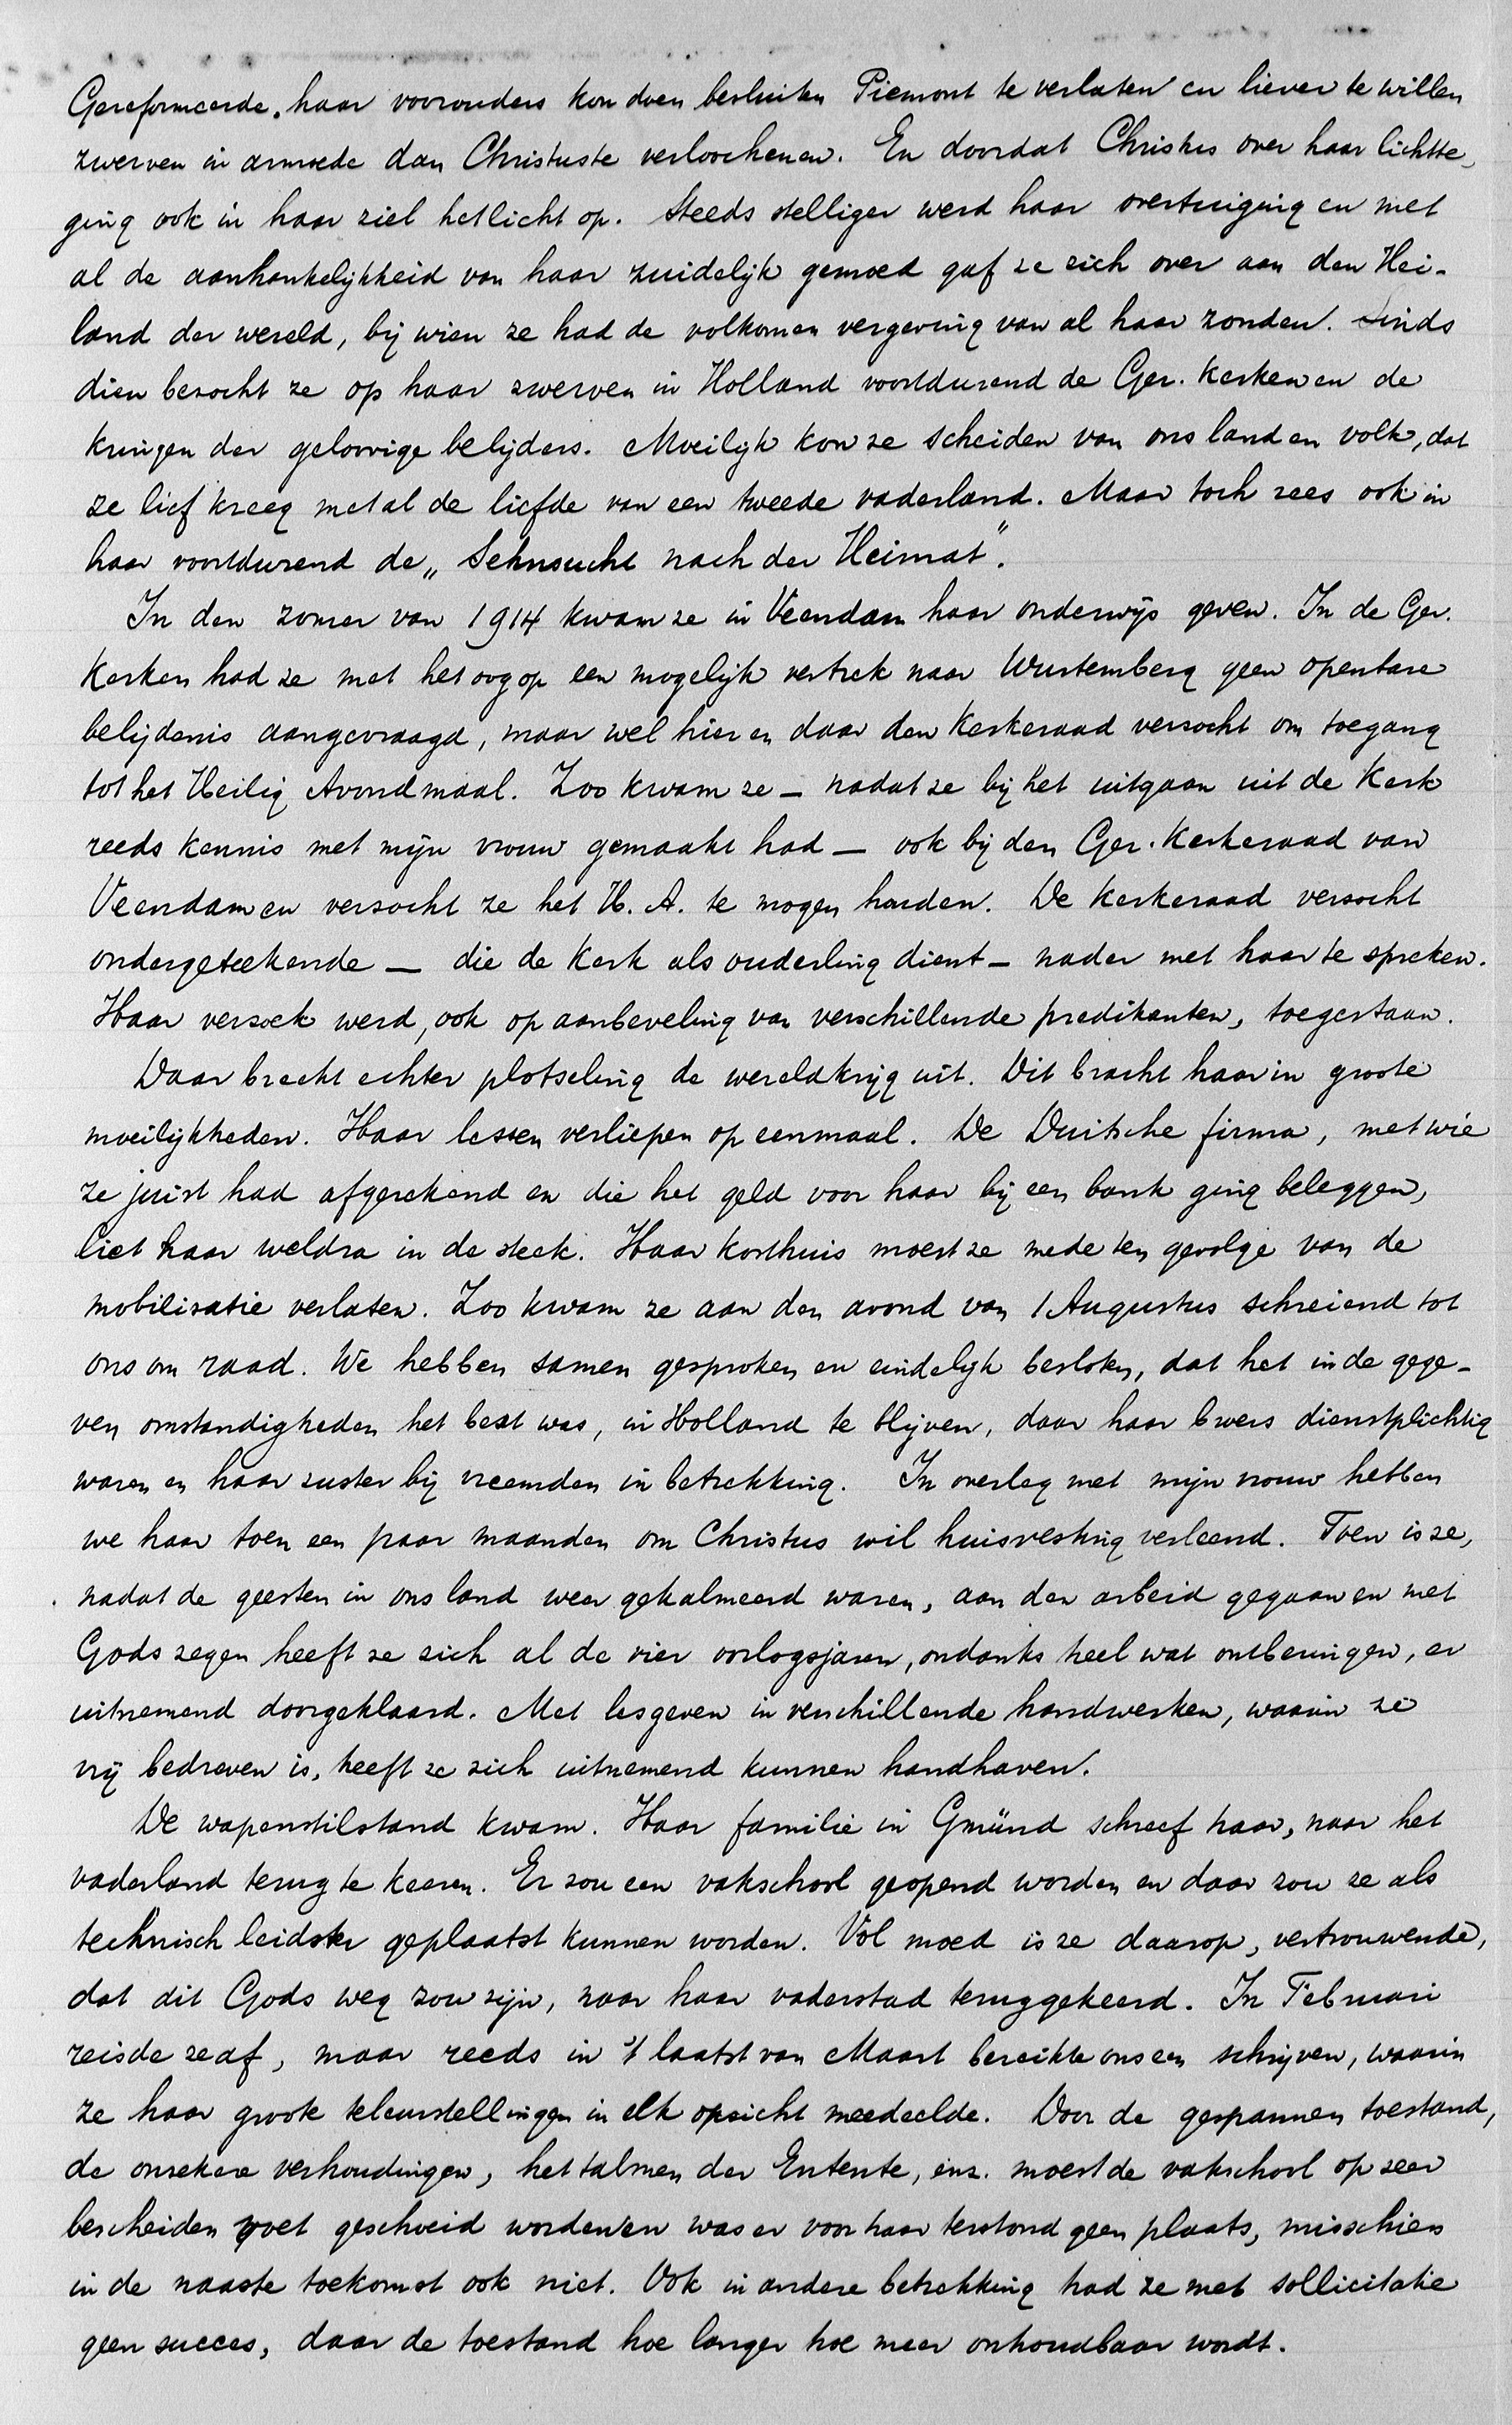 Gereformeerde, haar voorouders kon doen besluiten Piemont te verlaten en liever te willen
zwerven in armoede dan Christus te verloochenen. En doordat Christus over haar lichtte,
ging ook in haar ziel het licht op. Steeds stelliger werd haar overtuiging en met
al de aanhankelijkheid van haar zuidelijk gemoed gaf ze zich over aan den Hei-
land der wereld, bij wien ze had de volkomen vergeving van al haar zonden. Sinds
dien bezocht ze op haar zwerven in Holland voortdurend de Ger. Kerken en de
kringen der geloovige belijders. Moeilijk kon ze scheiden van ons land en volk, dat
ze lief kreeg met al de liefde van een tweede vaderland. Maar toch rees ook in
haar voortdurend de „Sehnsucht nach der Heimat".
In den zomer van 1914 kwam ze in Veendam haar onderwijs geven. In de Ger.
Kerken had ze met het oog op een mogelijk vertrek naar Wurtemberg geen openbare
belijdenis aangevraagd, maar wel hier en daar den Kerkeraad verzocht om toegang
tot het Heilig Avondmaal. Zoo kwam ze — nadat ze bij het uitgaan uit de Kerk
reeds kennis met mijn vrouw gemaakt had — ook bij den Ger. Kerkeraad van
Veendam en verzocht ze het H. A. te mogen houden. De Kerkeraad verzocht
ondergeteekende — die de Kerk als ouderling dient — nader met haar te spreken.
Haar verzoek werd, ook op aanbeveling van verschillende predikanten, toegestaan.
Daar brecht echter plotseling de wereldkrijg uit. Dit bracht haar in groote
moeilijkheden. Haar lessen verliepen op eenmaal. De Duitsche firma, met wie
ze juist had afgerekend en die het geld voor haar bij een bank ging beleggen,
liet haar weldra in de steek. Haar kosthuis moest ze mede ten gevolge van de
mobilisatie verlaten. Zoo kwam ze aan den avond van 1 Augustus schreiend tot
ons om raad. We hebben samen gesproken en eindelijk besloten, dat het in de gege-
ven omstandigheden het best was, in Holland te blijven, daar haar broers dienstplichtig
waren en haar zuster bij vreemden in betrekking. In overleg met mijn vrouw hebben
we haar toen een paar maanden om Christus wil huisvesting verleend. Toen is ze,
nadat de geesten in ons land weer gekalmeerd waren, aan den arbeid gegaan en met
Gods zegen heeft ze zich al de vier oorlogsjaren, ondanks heel wat ontberingen, er
uitnemend doorgeklaard. Met lesgeven in verschillende handwerken, waarin ze
vrij bedreven is, heeft ze zich uitnemend kunnen handhaven.
De wapenstilstand kwam. Haar familie in Gmünd schreef haar, naar het
vaderland terug te keeren. Er zou een vakschool geopend worden en daar zou ze als
technisch leidster geplaatst kunnen worden. Vol moed is ze daarop, vertrouwende,
dat dit Gods weg zou zijn, naar haar vaderstad teruggekeerd. In Februari
reisde ze af, maar reeds in 't laatst van Maart bereikte ons een schrijven, waarin
ze haar groote teleurstellingen in elk opzicht meedeelde. Door de gespannen toestand,
de onzekere verhoudingen, het talmen der Entente, enz. moest de vakschool op zeer
bescheiden voet geschoeid worden en was er voor haar terstond geen plaats, misschien
in de naaste toekomst ook niet. Ook in andere betrekking had ze met sollicitatie
geen succes, daar de toestand hoe langer hoe meer onhoudbaar wordt.